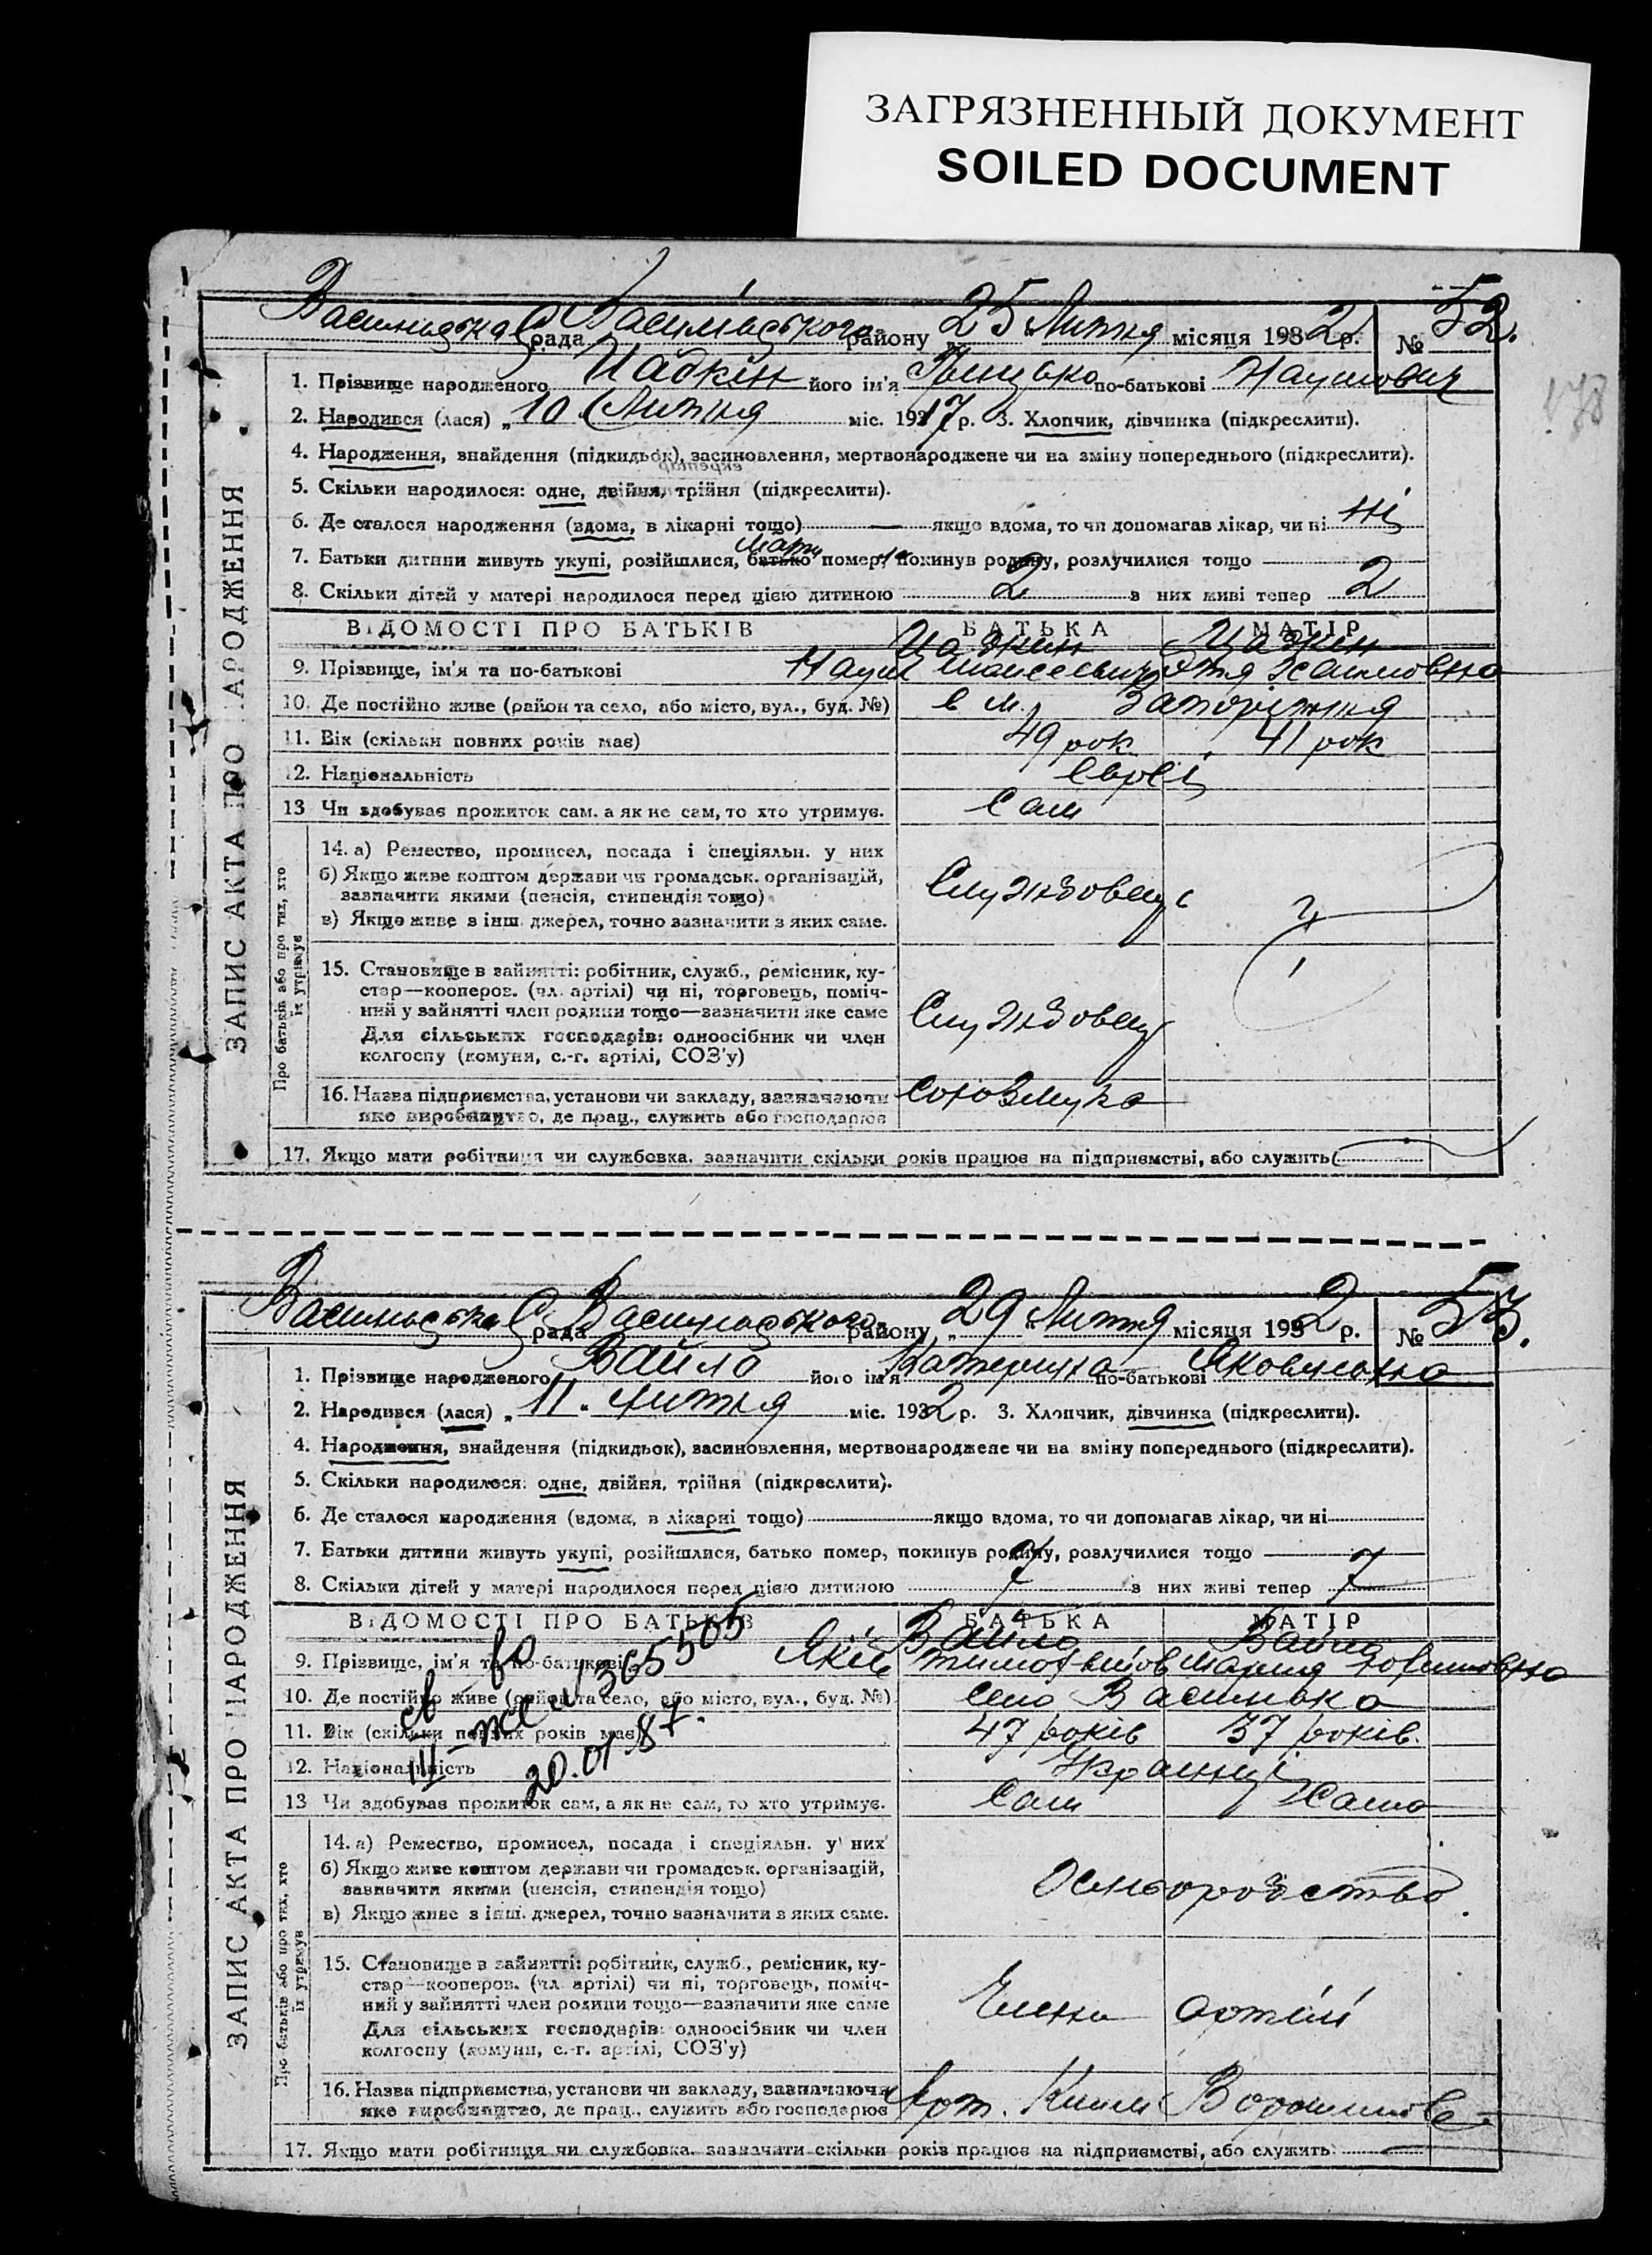 ЗАГРЯЗНЕННЫЙ ДОКУМЕНТ
SOILED DOCUMENT
178
ЗАПИС АКТА ПРО НАРОДЖЕННЯ
Василівська С рада Василівського району „25 Липня місяця 1932 р. № 52.
1. Прізвище народженого Цадкін його ім'я по-батькові Наумович
2. Народився (лася) „10 Липня міс. 1917 р. 3. Хлопчик, дівчинка (підкреслити).
4. Народження, знайдення (підкидьок), засиновлення, мертвонароджене чи на зміну попереднього (підкреслити).
5. Скільки народилося: одне, двійня, трійня (підкреслити).
6. Де сталося народження (вдома, в лікарні тощо) — якщо вдома, то чи допомагав лікар, чи ні Ні
7. Батьки дитини живуть укупі, розійшлися, батько мати помер, покинув родину, розлучилися тощо
8. Скільки дітей у матері народилося перед цією дитиною 2 з них живі тепер 2
ВІДОМОСТІ ПРО БАТЬКІВ БАТЬКА МАТІР
Цадкин Цадкин
9. Прізвище, ім'я та по-батькові Наум Моисеевич Хаимовна
10. Де постійно живе (район та село, або місто, вул., буд. №) в м. Запоріжжя
11. Вік (скільки повних років має) 49 рок 41 рок
12. Національність Євреї
13 Чи здобуває прожиток сам. а як не сам, то хто утримує. Сам
Про батьків або про тих, хто їх утримує
14. а) Ремество, промисел, посада і спеціяльн. у них
б) Якщо живе коштом держави чи громадськ. організацій,
зазначити якими (пенсія, стипендія тощо)
в) Якщо живе з інш. джерел, точно зазначити з яких саме.
Службовець
15. Становище в зайнятті: робітник, служб., ремісник, ку-
стар—коопер​ов. (чл. артілі) чи ні, торговець, поміч-
ний у зайнятті член родини тощо—зазначити яке саме
Для сільських господарів: одноосібник чи член
колгоспу (комуни, с.-г. артілі, СОЗ'у)
Службовець
16. Назва підприємства, установи чи закладу, зазначаючи Союзмука
яке виробництво, де прац., служить або господарює
17. Якщо мати робітниця чи службовка. зазначити скільки років працює на підприємстві, або служить
ЗАПИС АКТА ПРО НАРОДЖЕННЯ
Василівська С рада Василівського району „29 Липня місяця 1932 р. № 53.
1. Прізвище народженого Вайло його ім'я Катерина по-батькові Яковлевна
2. Народився (лася) „11" липня міс. 1932 р. 3. Хлопчик, дівчинка (підкреслити).
4. Народження, знайдення (підкидьок), засиновлення, мертвонароджене чи на зміну попереднього (підкреслити).
5. Скільки народилося: одне, двійня, трійня (підкреслити).
6. Де сталося народження (вдома, в лікарні тощо) якщо вдома, то чи допомагав лікар, чи ні
7. Батьки дитини живуть укупі, розійшлися, батько помер, покинув родину, розлучилися тощо
8. Скільки дітей у матері народилося перед цією дитиною 7 з них живі тепер 7
ВІДОМОСТІ ПРО БАТЬКІВ БАТЬКА МАТІР
Вайло Вайло
9. Прізвище, ім'я та по-батькові Яків Тимофеїов Мария
10. Де постійно живе (район та село, або місто, вул., буд. №) село Василівка
11. Вік (скільки повних років має) 47 років 37 років.
12. Національність Українці
13 Чи здобуває прожиток сам, а як не сам, то хто утримує. Сам Сама
св-во
III-ЖС № 365505
20.01.87.
Про батьків або про тих, хто їх утримує
14. а) Ремество, промисел, посада і спеціяльн. у них
б) Якщо живе коштом держави чи громадськ. організацій,
зазначити якими (пенсія, стипендія тощо)
в) Якщо живе з інш. джерел, точно зазначити з яких саме.
Хліборобство.
15. Становище в зайнятті: робітник, служб., ремісник, ку-
стар—кооперов. (чл. артілі) чи ні, торговець, поміч-
ний у зайнятті член родини тощо—зазначити яке саме
Для сільських господарів: одноосібник чи член
колгоспу (комуни, с.-г. артілі, СОЗ'у)
Члени артілі
16. Назва підприємства, установи чи закладу, зазначаючи Арт. Ворошилова
яке виробництво, де прац., служить або господарює
17. Якщо мати робітниця чи службовка. зазначити скільки років працює на підприємстві, або служить